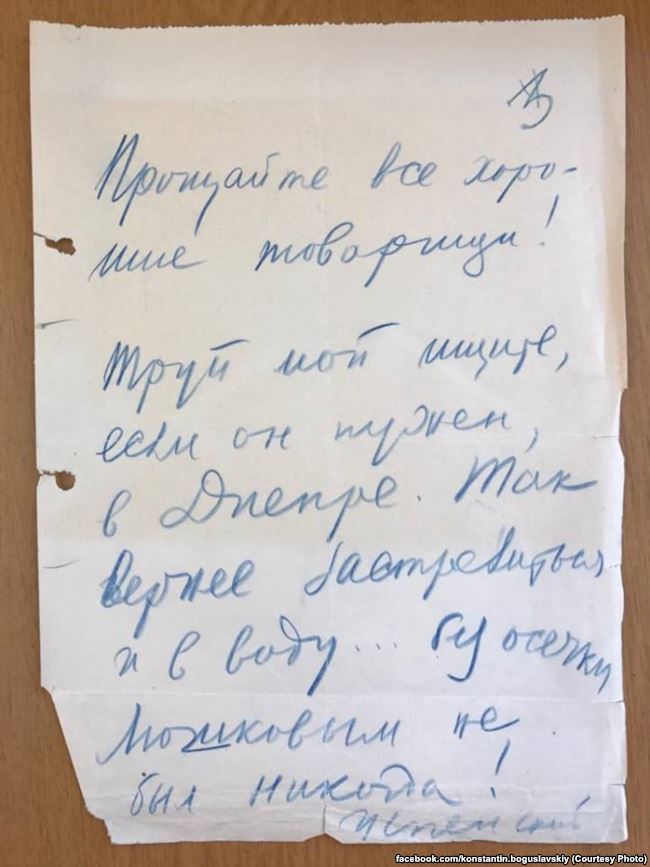 Прощайте все хоро-
шие товарищи!
Труп мой ищите,
если он нужен,
в Днепре. Так
вернее застрелиться
и в воду... без осечки
Люшковым не
был никогда!
Успенский
facebook.com/konstantin.boguslavskiy (Courtesy Photo)